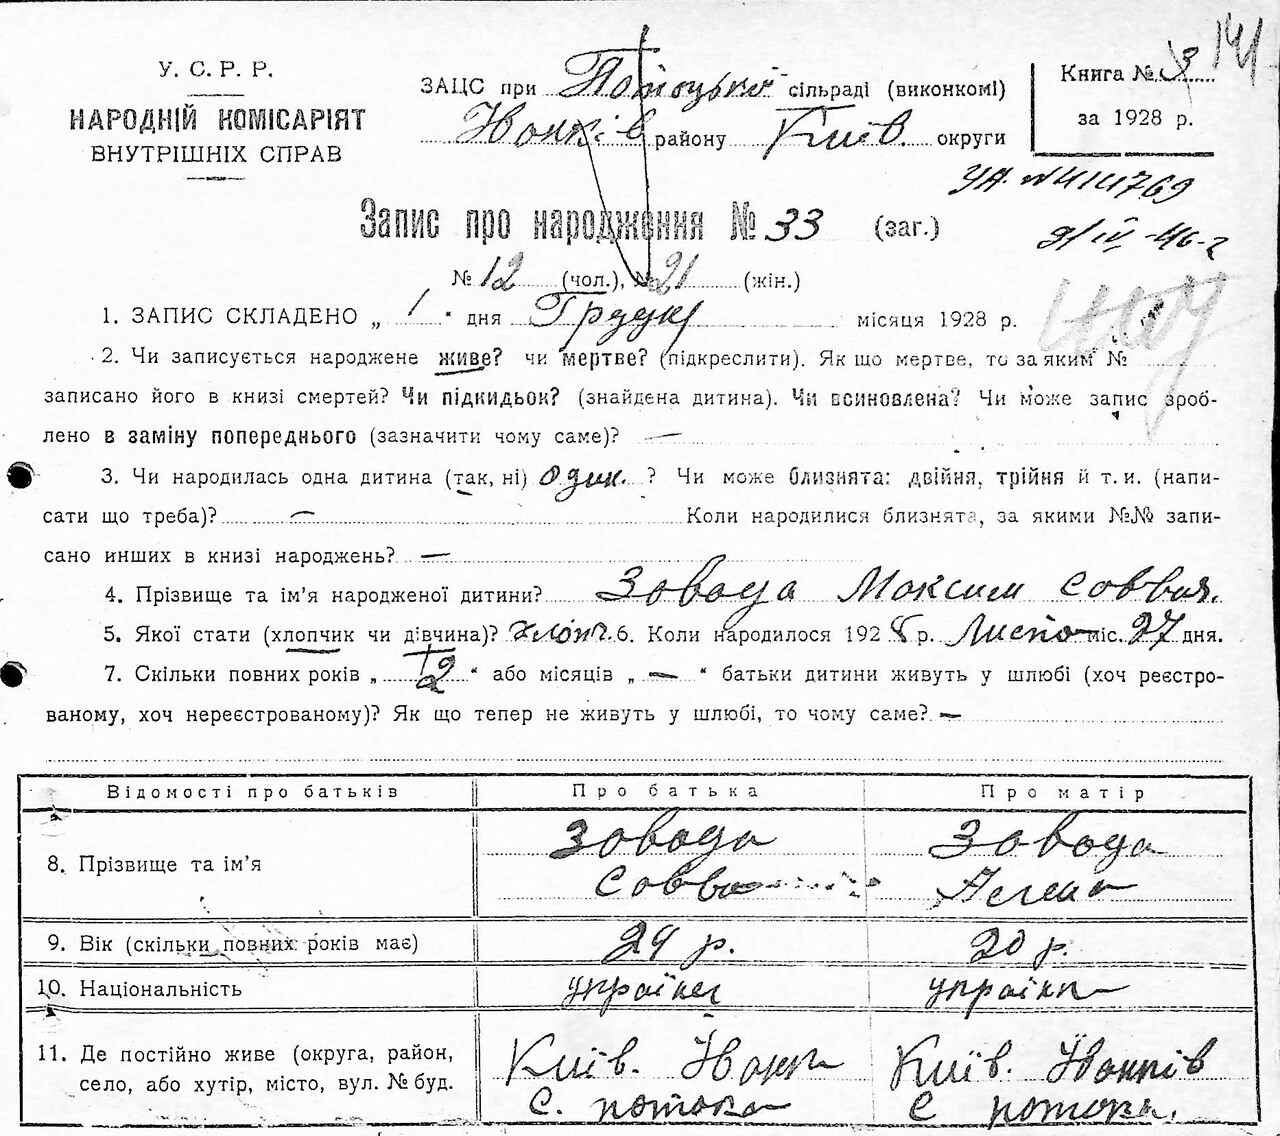 141
У. С. Р. Р.
НАРОДНІЙ КОМІСАРІЯТ
ВНУТРІШНІХ СПРАВ
ЗАЦС при Потоцькій сільраді (виконкомі)
Іванків району Київ. округи
Книга № 3
за 1928 р.
УА. №414769
9/IV-46 г
Запис про народження № 33 (заг.)
№ 12 (чол.), № 21 (жін.)
1. ЗАПИС СКЛАДЕНО „ 1 “ дня Грудня місяця 1928 р.
2. Чи записується народжене живе? чи мертве? (підкреслити). Як що мертве, то за яким №
записано його в книзі смертей? Чи підкидьок? (знайдена дитина). Чи всиновлена? Чи може запис зроб-
лено в заміну попереднього (зазначити чому саме)? —
3. Чи народилась одна дитина (так, ні) один. ? Чи може близнята: двійня, трійня й т. и. (напи-
сати що треба)? — Коли народилися близнята, за якими №№ запи-
сано инших в книзі народжень? —
4. Прізвище та ім’я народженої дитини? Завода Максим Савв
5. Якої стати (хлопчик чи дівчина)? хлопч. 6. Коли народилося 1928 р. Листо міс. 27 дня.
7. Скільки повних років „ 2 “ або місяців „ — “ батьки дитини живуть у шлюбі (хоч реєстро-
ваному, хоч нереєстрованому)? Як що тепер не живуть у шлюбі, то чому саме? —
Відомості про батьків Про батька Про матір
8. Прізвище та ім’я Завода Завода
Савва
9. Вік (скільки повних років має) 24 р. 20 р.
10. Національність українец українка
11. Де постійно живе (округа, район, Київ. Іванк Київ. Іванків
село, або хутір, місто, вул. № буд. с. Потоки с Потоки.